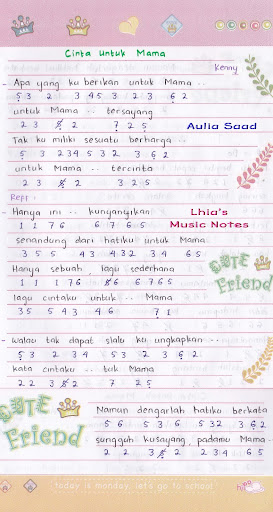 Cinta untuk Mama
Kenny
- Apa yang ku berikan untuk Mama ..
5 3 2 3 4 5 3 2 3 6 2
untuk Mama .. tersayang
2 3 5 2 7 2 5
Aulia Saad
Tak ku miliki sesuatu berharga ..
5 3 2 3 4 5 3 2 3 6 2
untuk Mama .. tercinta
2 3 5 2 3 2 5
Reff :
- Hanya ini .. kunyanyikan
Lhia's
1 1 7 6 6 7 6 5
Music Notes
senandung dari hatiku untuk Mama
3 5 5 4 3 4 3 2 3 4 6 5
Hanya sebuah lagu sederhana
1 1 1 7 6 5 6 6 7 6 5
lagu cintaku untuk .. Mama
3 5 5 4 3 4 6 7 1
CUTE
Friend
- walau tak dapat slalu ku ungkapkan ..
5 3 2 3 4 5 3 2 3 6 2
kata cintaku .. tuk Mama
2 2 3 5 2 7 2 5
CUTE
Friend
Namun dengarlah hatiku berkata
5 6 5 3 6 5 3 2 3 6 2
sungguh kusayang padamu Mama ..
2 2 3 5 2 2 3 4 6 5
today is monday, let's go to school!